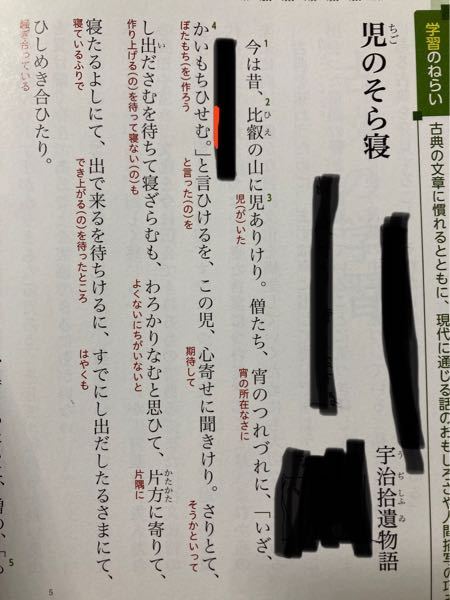 学習のねらい
古典の文章に慣れるとともに、現代に通じる話のおもしろさや人間描写の
児のそら寝
ちご
宇治拾遺物語
うぢしふゐ
1
2
3
今は昔、比叡の山に児ありけり。僧たち、宵のつれづれに、「いざ、
ひえ
児(が)いた
宵の所在なさに
4
かいもちひせむ。」と言ひけるを、この児、心寄せに聞きけり。さりとて、
ぼたもち(を)作ろう
と言った(の)を
期待して
そうかといって
し出ださむを待ちて寝ざらむも、わろかりなむと思ひて、片方に寄りて、
い
かたかた
作り上げる(の)を待って寝ない(の)も
よくないにちがいないと
片隅に
寝たるよしにて、出で来るを待ちけるに、すでにし出だしたるさまにて、
寝ているふりで
でき上がる(の)を待ったところ
はやくも
ひしめき合ひたり。
騒ぎ合っている
5
5